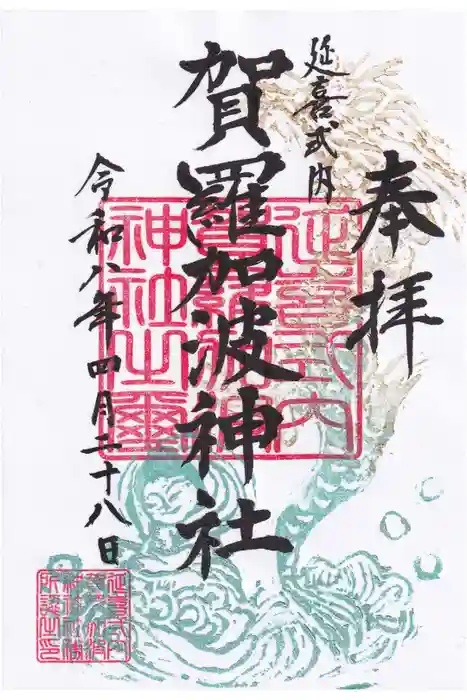 奉拝
延喜式内
賀羅加波神社
令和八年四月二十八日
延喜式内
賀羅加波
神社之璽